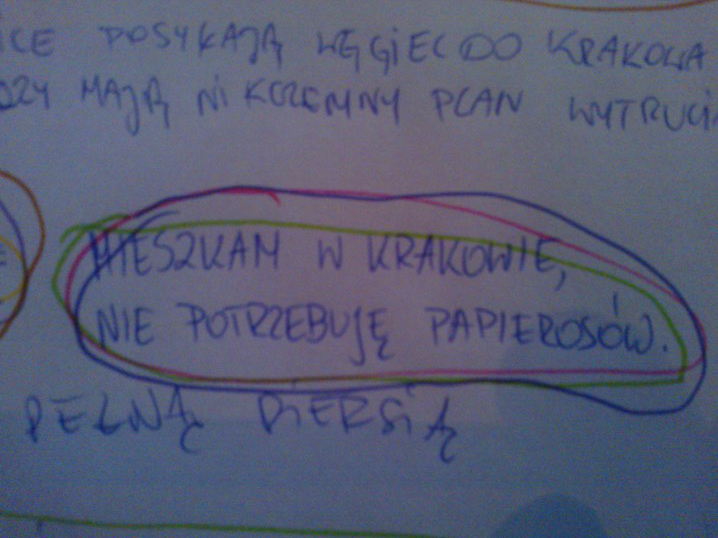 POSYŁAJĄ WĘGIEL DO KRAKOWA
MAJĄ NIKCZEMNY PLAN
MIESZKAM W KRAKOWIE,
NIE POTRZEBUJĘ PAPIEROSÓW.
PEŁNĄ PIERSIĄ